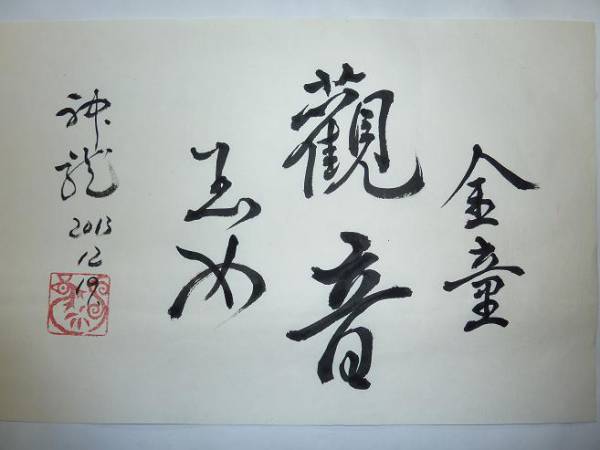 金童
觀音
玉女
神龍
2013
12
19